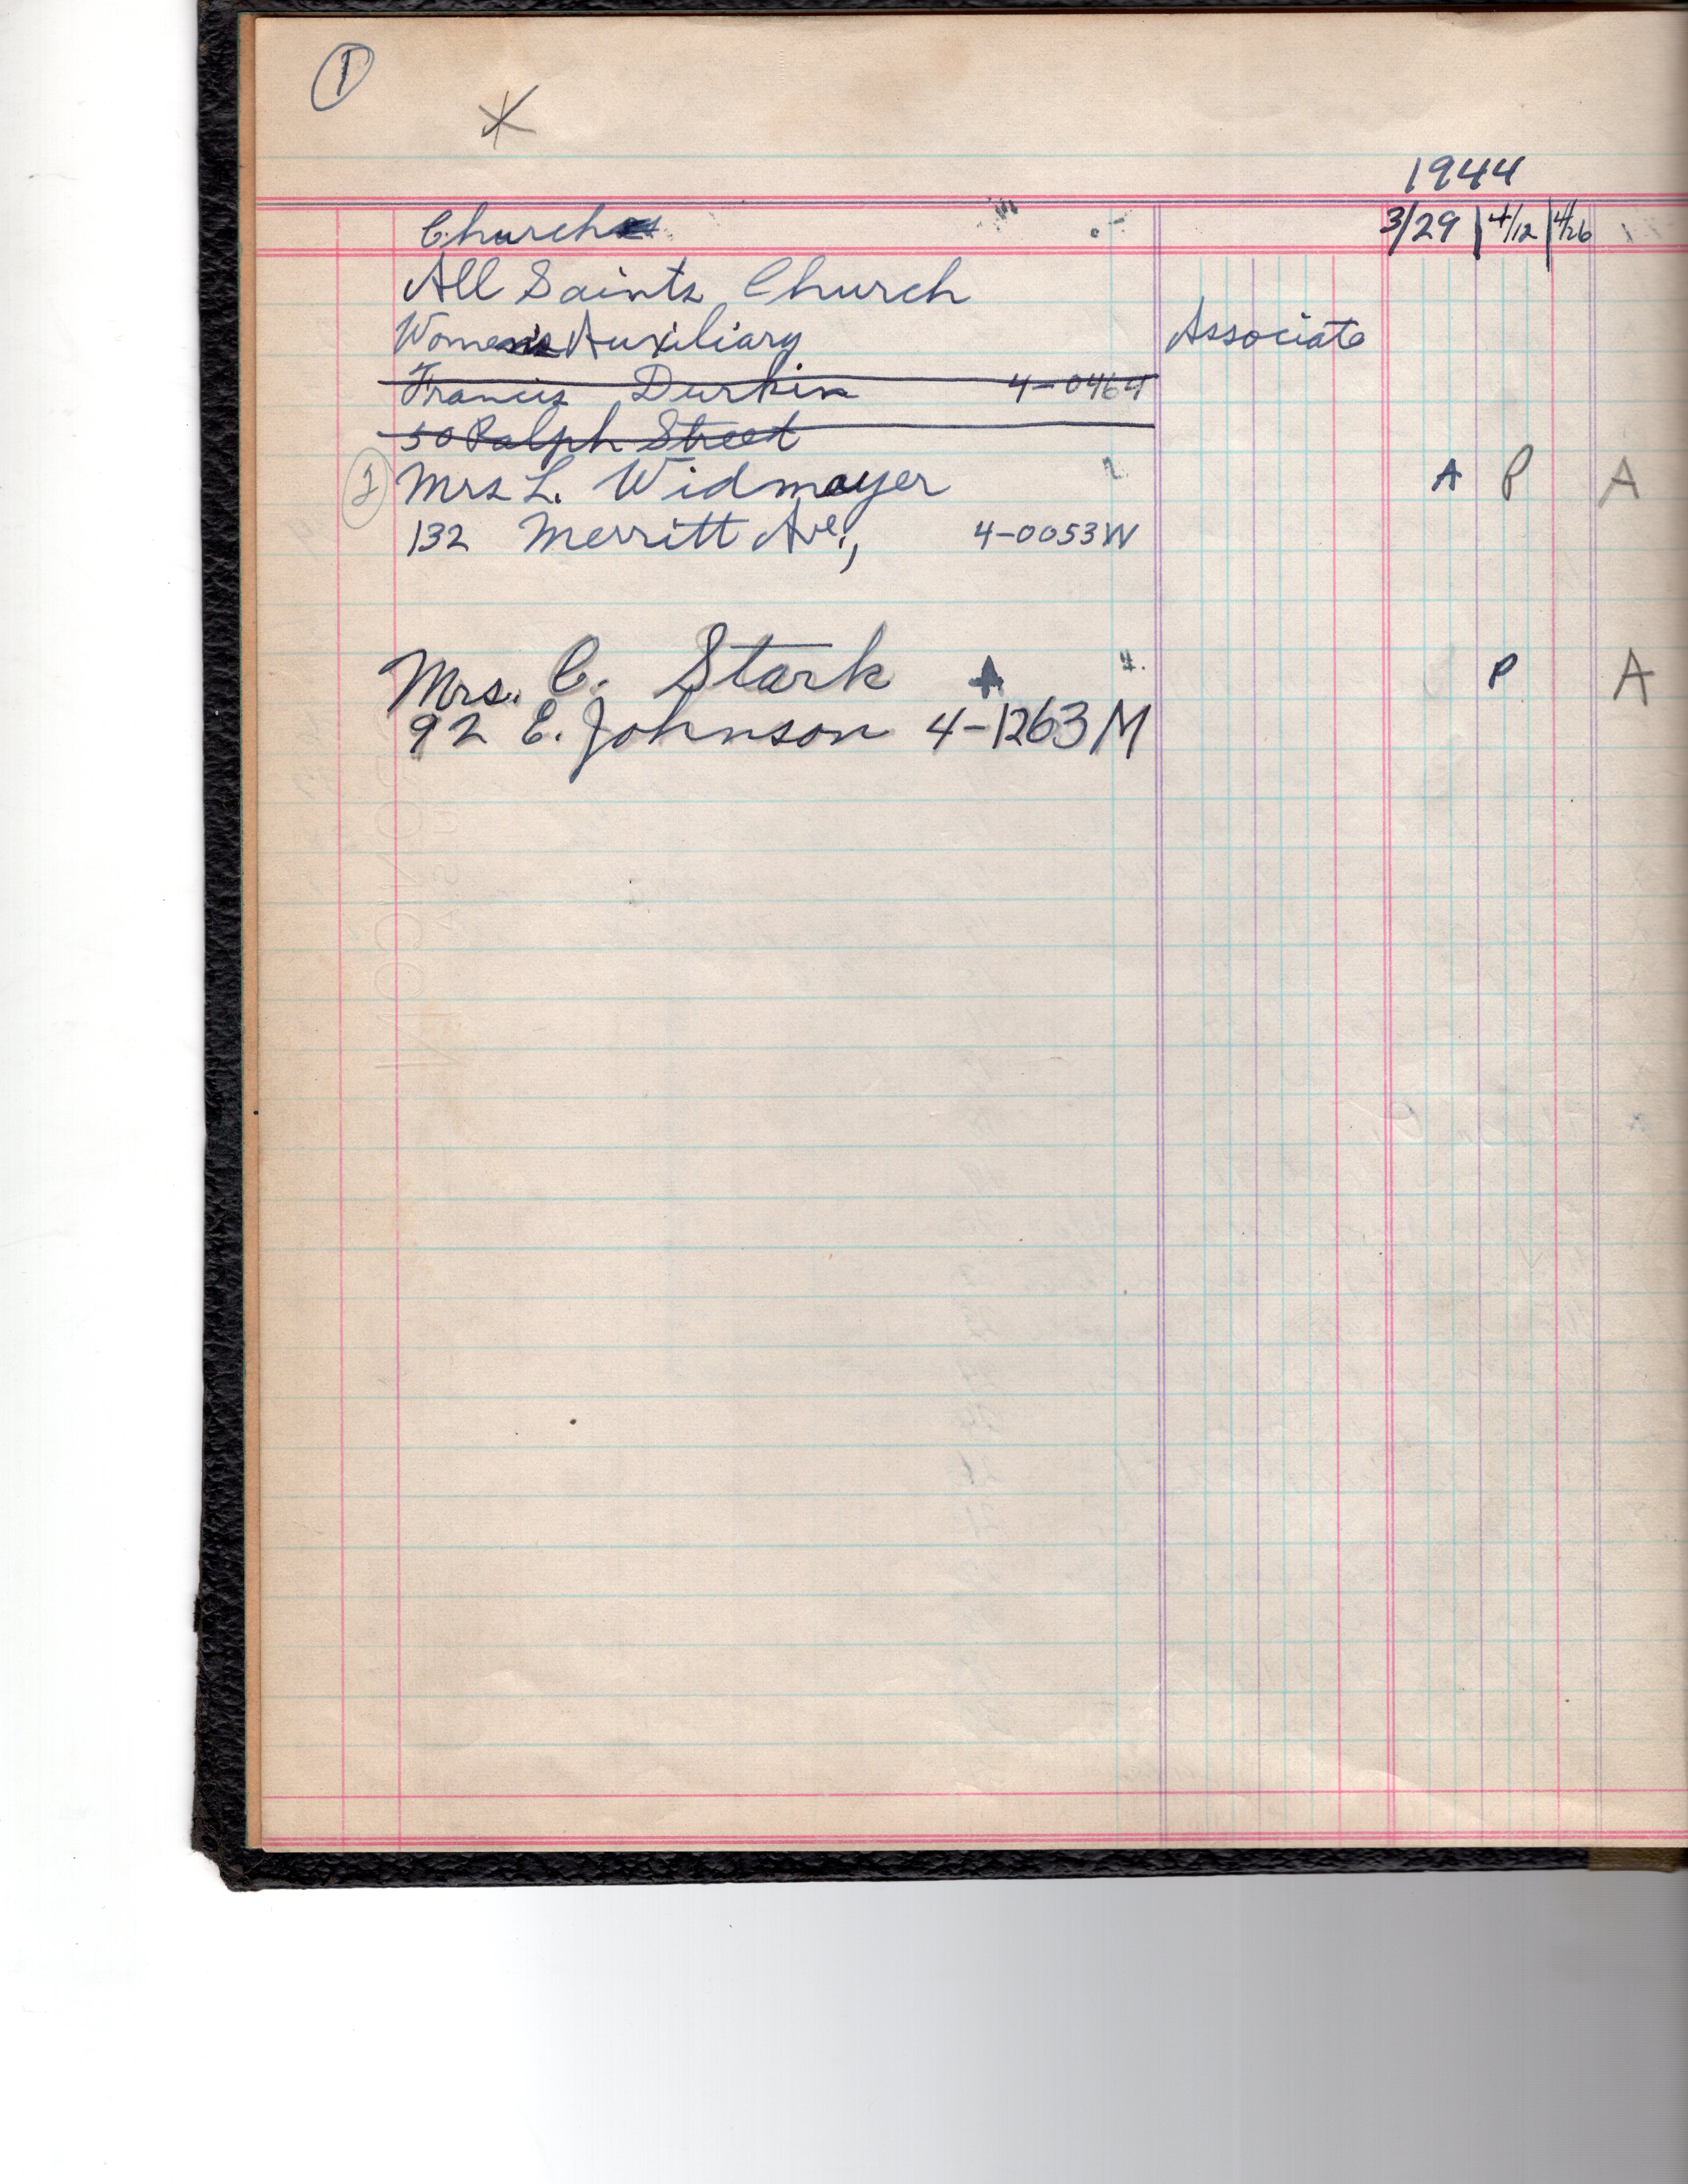 1
1944
Church 3/29 4/12 4/26
All Saints Church
Women's Auxiliary Associate
Francis Durkin 4-0464
50 Ralph Street
2 Mrs L. Widmayer A P A
132 Merritt Ave., 4-0053W
Mrs. C. Stark A P A
92 E. Johnson 4-1263M